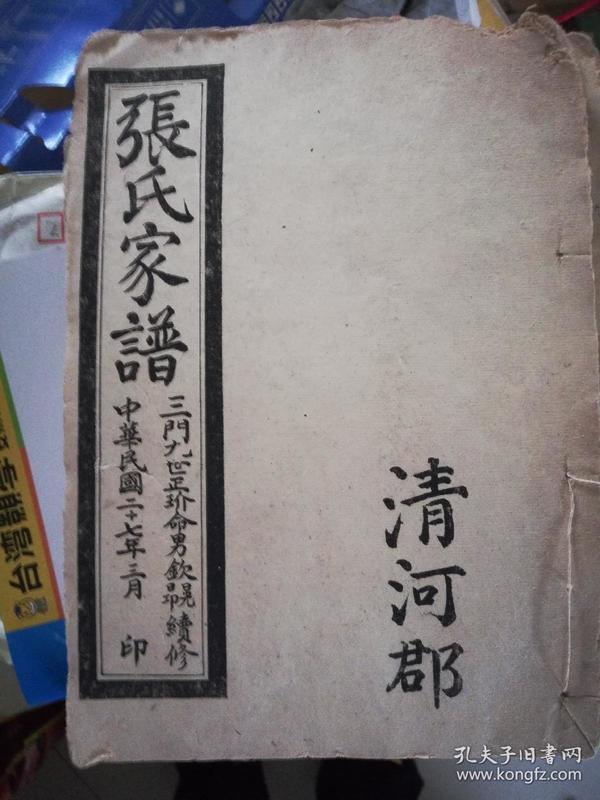 張氏家譜
三門九世正玠命男欽晃昴續修
中華民國二十七年三月 印
清河郡
孔夫子旧书网
www.kongfz.com